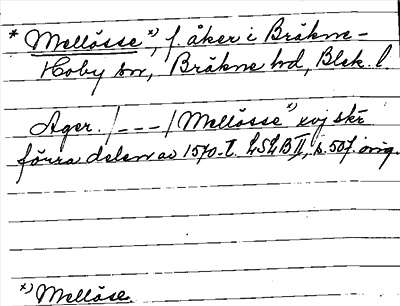 * Mellösse x), f. åker i Bräkne-
Hoby sn, Bräkne hd, Blek. l.
Ager. /---/ Mellösse x) xvj skr
förra delen av 1570-t. LSLB II, s. 507. orig.
x) Mellöse.